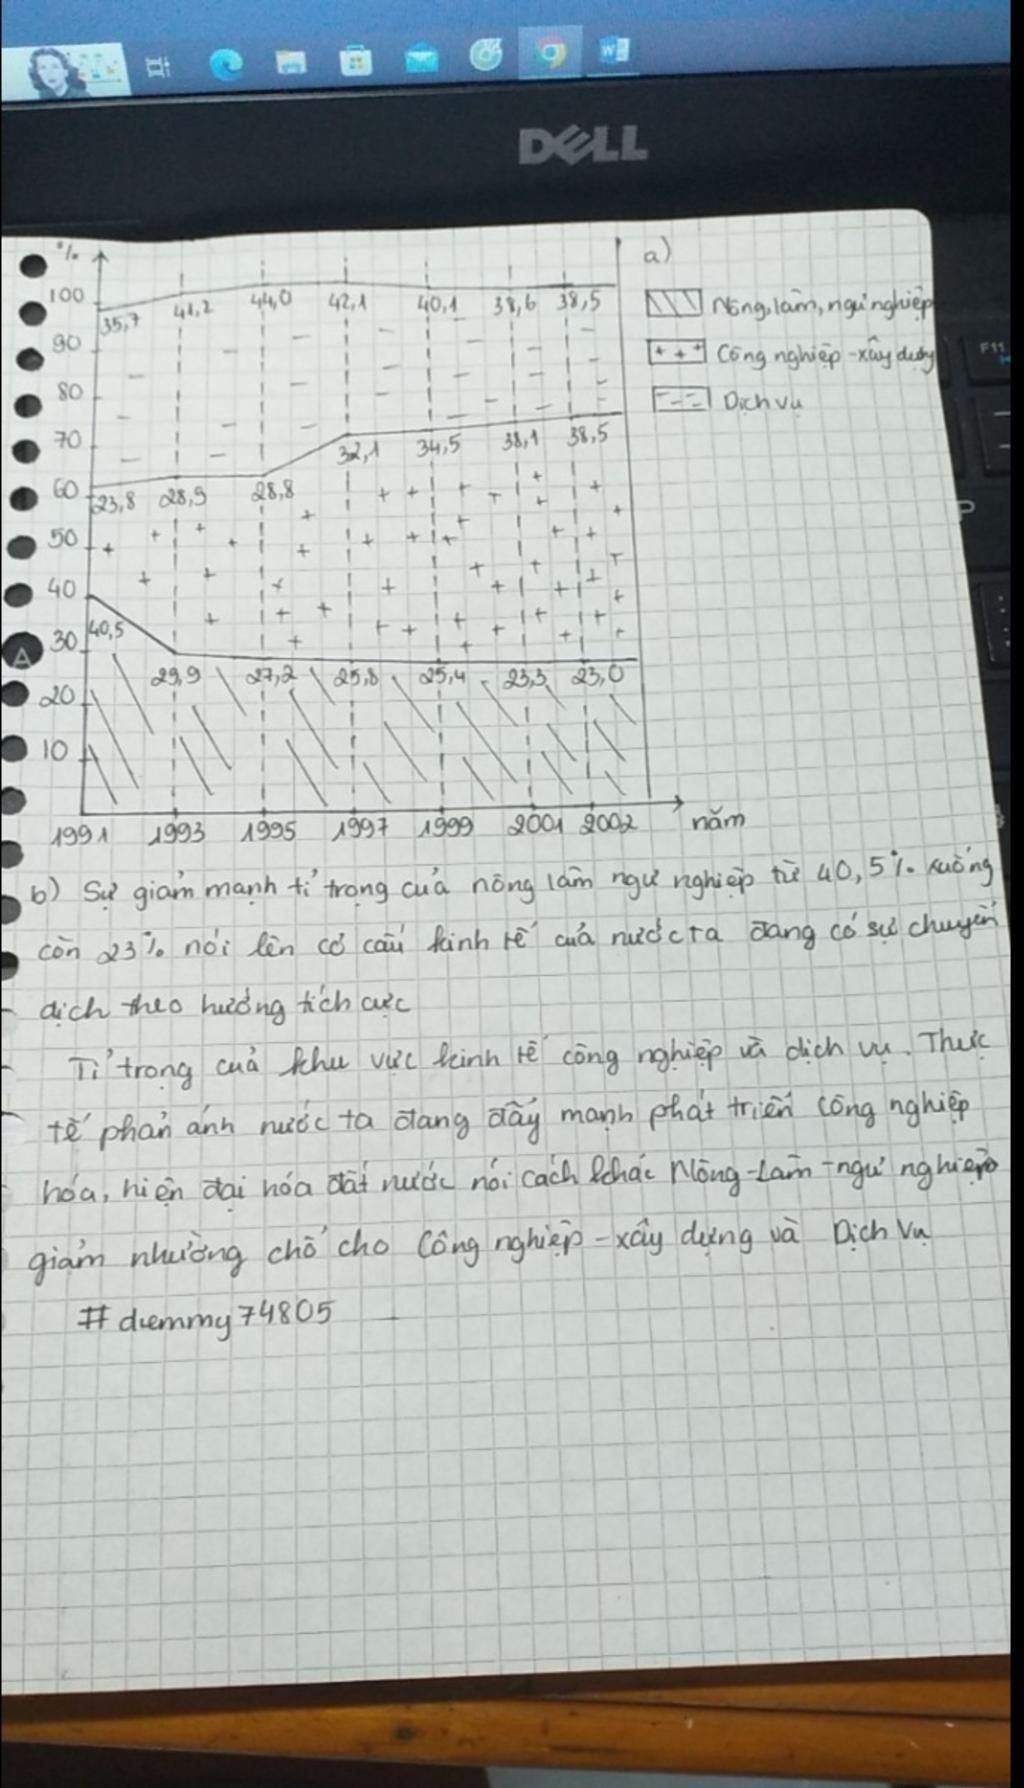 DELL
F11
P
A
a)
%
100
90
80
70
60
50
40
30
20
10
35,7 41,2 44,0 42,1 40,1 38,6 38,5
23,8 28,9 28,8 32,1 34,5 38,1 38,5
40,5 29,9 27,2 25,8 25,4 23,3 23,0
1991 1993 1995 1997 1999 2001 2002 năm
Nông, lâm, ngư nghiệp
Công nghiệp - xây dựng
Dịch vụ
b) Sự giảm mạnh tỉ trọng của nông lâm ngư nghiệp từ 40,5% xuống
còn 23% nói lên cơ cấu kinh tế của nước ta đang có sự chuyển
dịch theo hướng tích cực
Tỉ trọng của khu vực kinh tế công nghiệp và dịch vụ. Thực
tế phản ánh nước ta đang đẩy mạnh phát triển công nghiệp
hóa, hiện đại hóa đất nước nói cách khác Nông-Lâm-ngư nghiệp
giảm nhường chỗ cho Công nghiệp - xây dựng và Dịch Vụ
#diemmy74805